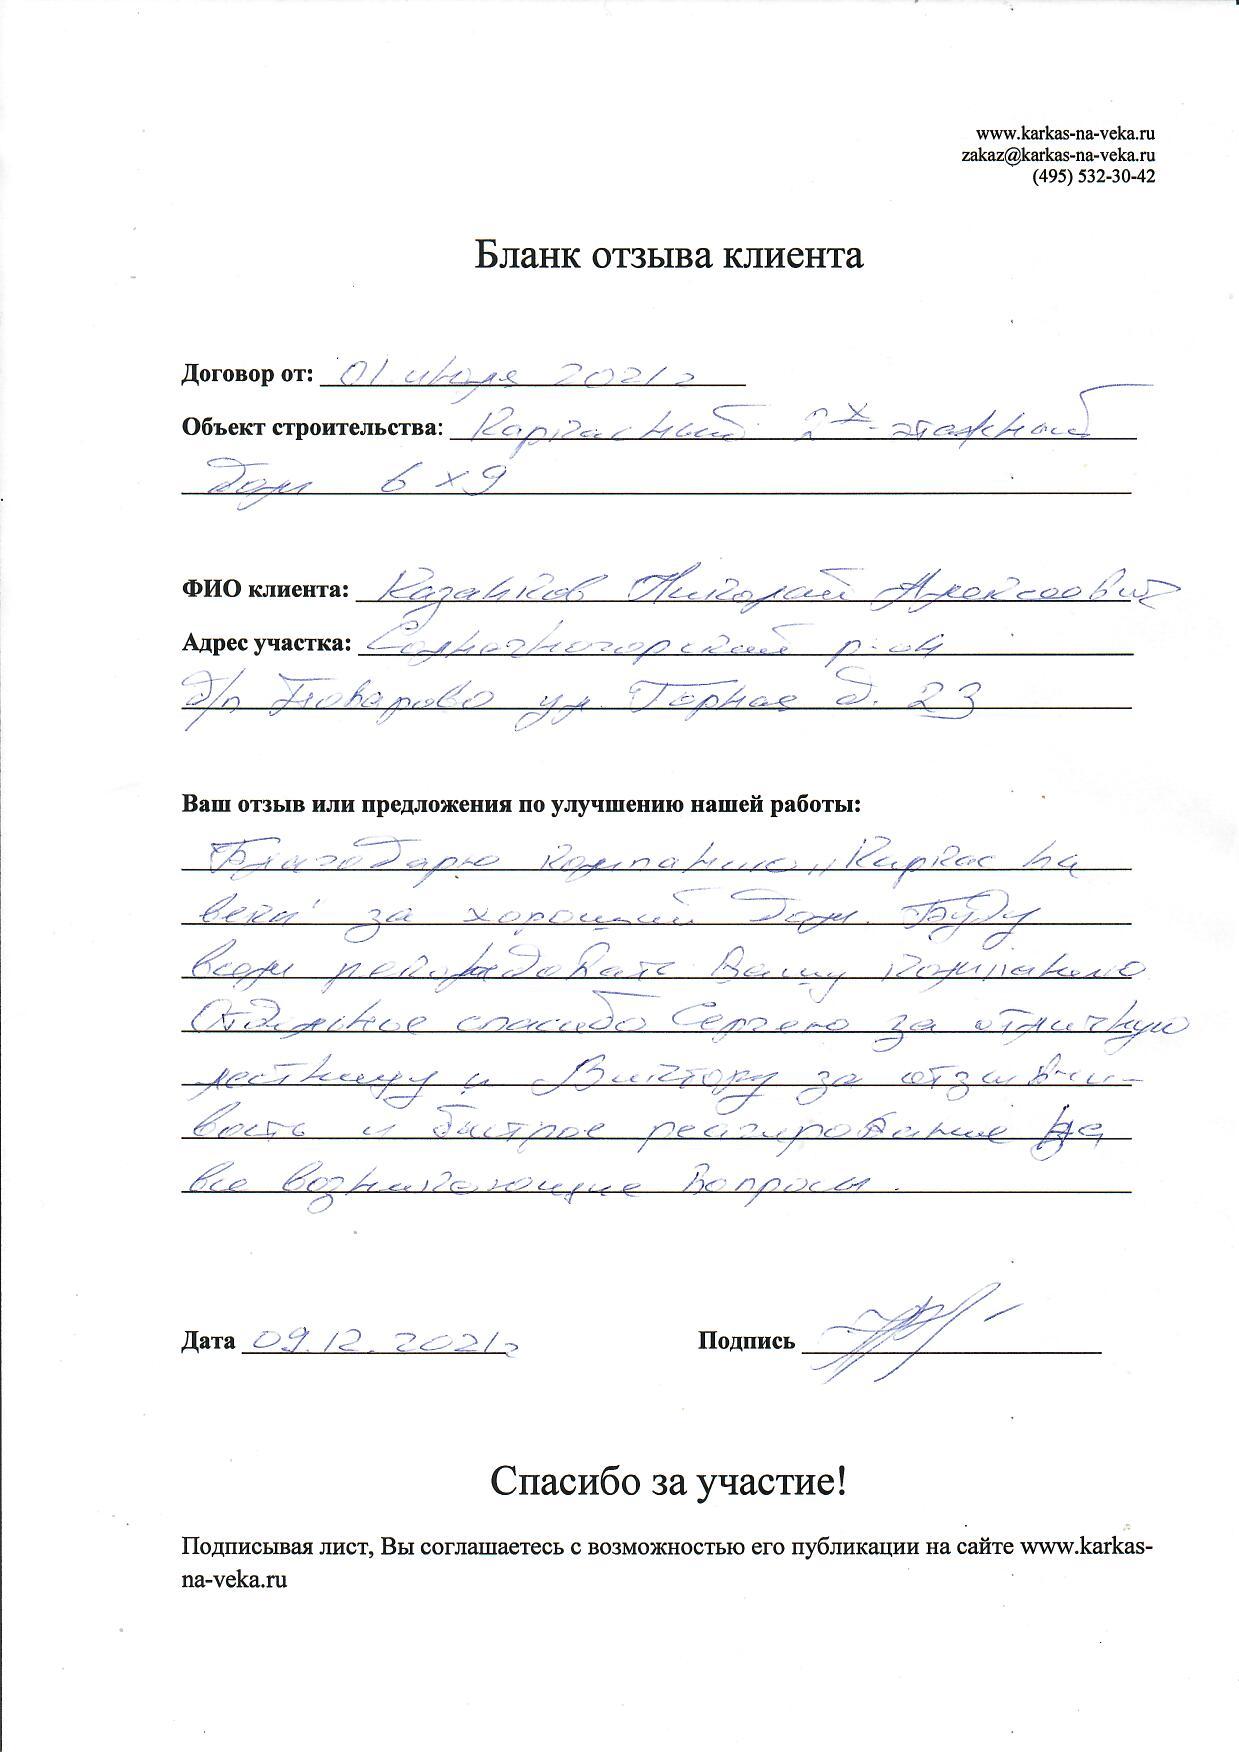 www.karkas-na-veka.ru
zakaz@karkas-na-veka.ru
(495) 532-30-42
Бланк отзыва клиента
Договор от: 01 июля 2021г
Объект строительства: Каркасный 2х-этажный
дом 6 х 9
ФИО клиента: Казанков Николай Алексеевич
Адрес участка: Солнечногорский р-он
д/п Поварово ул. Горная д. 23
Ваш отзыв или предложения по улучшению нашей работы:
Благодарю компанию „Каркас на
века" за хороший дом. Буду
всем рекомендовать Вашу компанию
Отдельное спасибо Сергею за отличную
лестницу и Виктору за отзывчи-
вость и быстрое реагирование на
все возникающие вопросы.
Дата 09.12.2021г Подпись
Спасибо за участие!
Подписывая лист, Вы соглашаетесь с возможностью его публикации на сайте www.karkas-
na-veka.ru